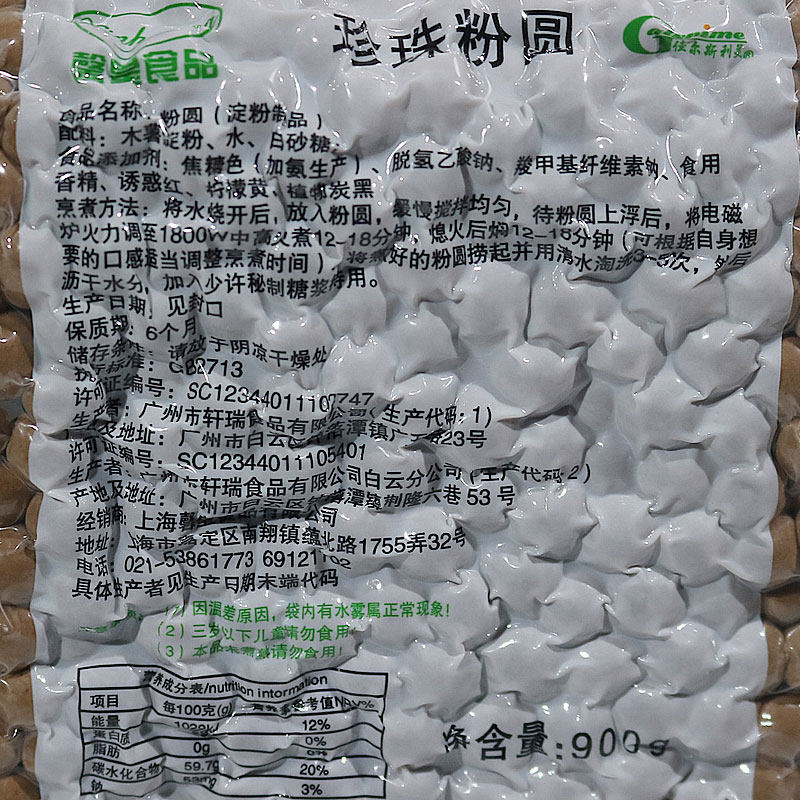 珍珠粉圆
馨巢食品
佳尔斯利美
食品名称：粉圆（淀粉制品）
配料：木薯淀粉、水、白砂糖
食品添加剂：焦糖色（加氨生产）、脱氢乙酸钠、羧甲基纤维素钠、食用
香精、诱惑红、柠檬黄、植物炭黑
烹煮方法：将水烧开后，放入粉圆，缓慢搅拌均匀，待粉圆上浮后，将电磁
炉火力调至1800W中高火煮12-18分钟，熄火后焖12-18分钟（可根据自身想
要的口感适当调整烹煮时间），将煮好的粉圆捞起并用清水淘洗3-5次，然后
沥干水分，加入少许秘制糖浆好用。
生产日期：见封口
保质期：6个月
储存条件：请放于阴凉干燥处
执行标准：GB2713
许可证编号：SC12344011107747
生产者：广州市轩瑞食品有限公司（生产代码：1）
产地及地址：广州市白云区 潭镇广 23号
许可证编号：SC12344011105401
生产者：广州市轩瑞食品有限公司白云分公司（生产代码：2）
产地及地址：广州市白云区 潭镇 隆六巷53号
经销商：上海 有限公司
地址：上海市嘉定区南翔镇蕴北路1755弄32号
电话：021-53861773 69121702
具体生产者见生产日期末端代码
（1）因温差原因，袋内有水雾属正常现象！
（2）三岁以下儿童请勿食用！
（3）本品 请勿食用！
营养成分表/nutrition information
项目 每100克(g) 营养素参考值NRV%
能量 12%
蛋白质 0%
脂肪 0g 0%
碳水化合物 59.7g 20%
钠 53mg 3%
净含量：900g